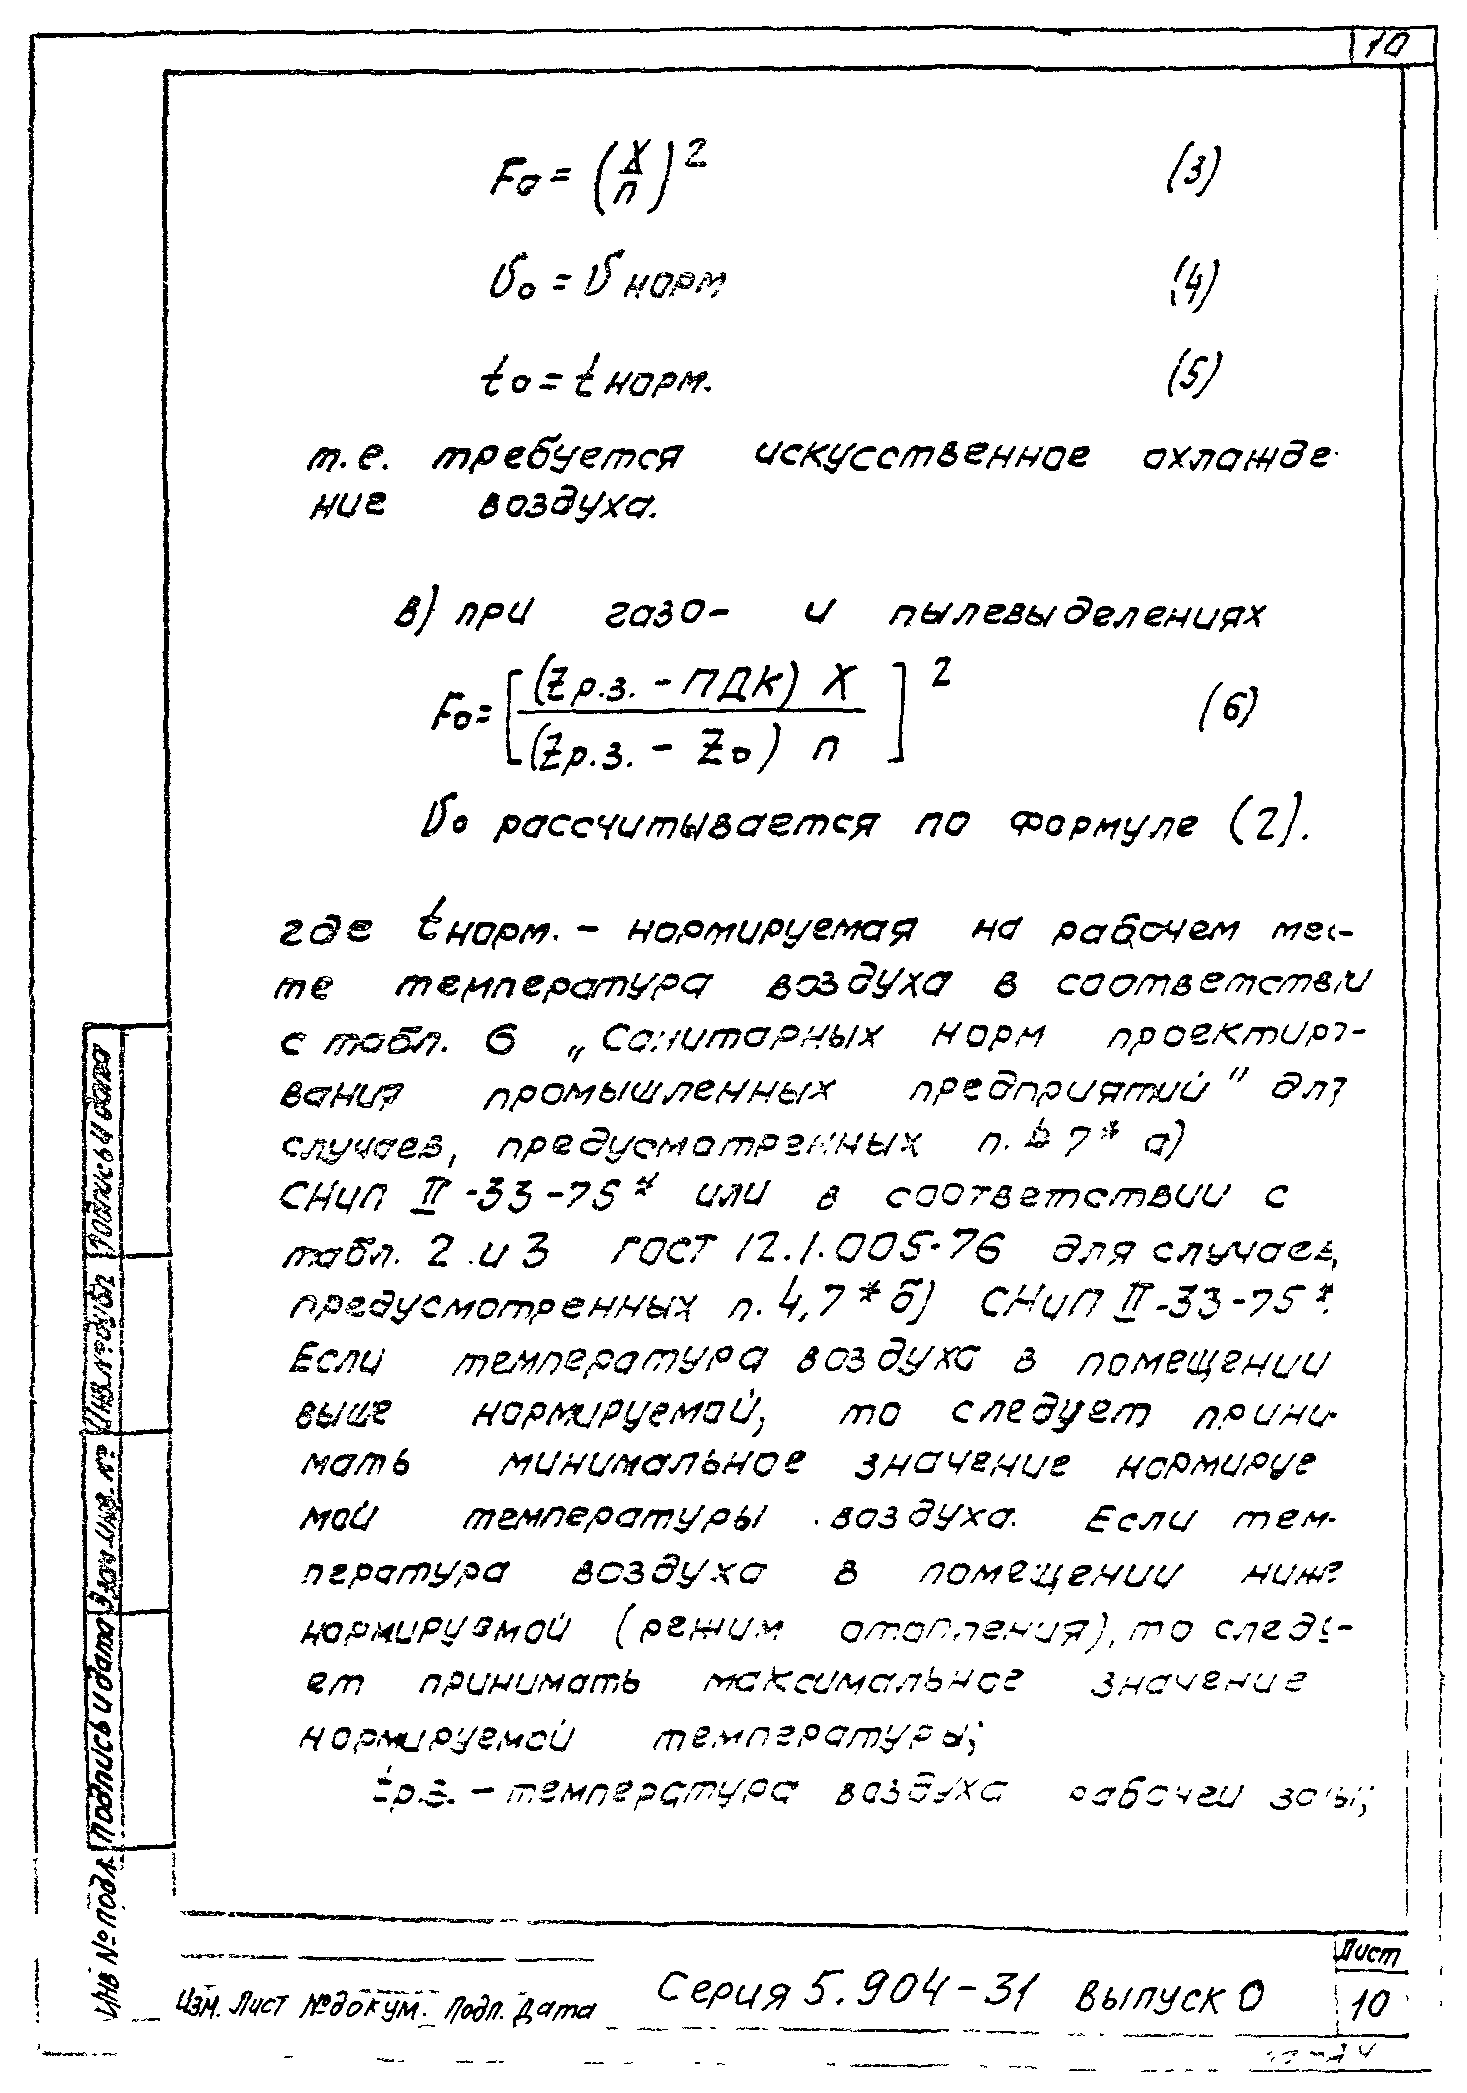 10
F₀ = (X/п)² (3)
υ₀ = υ норм (4)
t₀ = t норм. (5)
т.е. требуется искусственное охлажде-
ние воздуха.
в) при газо- и пылевыделениях
F₀ = [(Zр.з. - ПДК) X / (Zр.з. - Z₀) п]² (6)
υ₀ рассчитывается по формуле (2).
где tнорм. - нормируемая на рабочем мес-
те температура воздуха в соответствии
с табл. 6 „Санитарных норм проектиро-
вания промышленных предприятий" для
случаев, предусмотренных п. 4.7* а)
СНиП II-33-75* или в соответствии с
табл. 2 и 3 ГОСТ 12.1.005-76 для случаев,
предусмотренных п. 4,7* б) СНиП II-33-75*.
Если температура воздуха в помещении
выше нормируемой, то следует прини-
мать минимальное значение нормируе
мой температуры воздуха. Если тем-
пература воздуха в помещении ниже
нормируемой (режим отопления), то следу-
ет принимать максимальное значение
нормируемой температуры;
tр.з. - температура воздуха рабочей зоны;
Инв № подл. Подпись и дата Взам. инв. № Инв. № дубл. Подпись и дата
Изм. Лист № докум. Подп. Дата
Серия 5.904-31 Выпуск 0
Лист
10